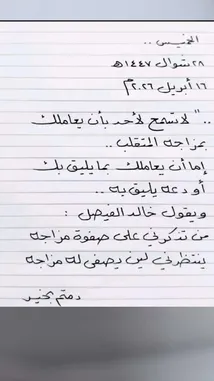 الخميس ..
٢٨ شوال ١٤٤٧هـ
١٦ أبريل ٢٠٢٦م
.." لا تسمح لأحد بأن يعاملك
بمزاجه المتقلب ..
إما أن يعاملك بما يليق بك
أو دعه يليق به ..
ويقول خالد الفيصل :
من تذكرني على صفوة مزاجه
ينتظرني لين يصفى له مزاجه
دمتم بخير